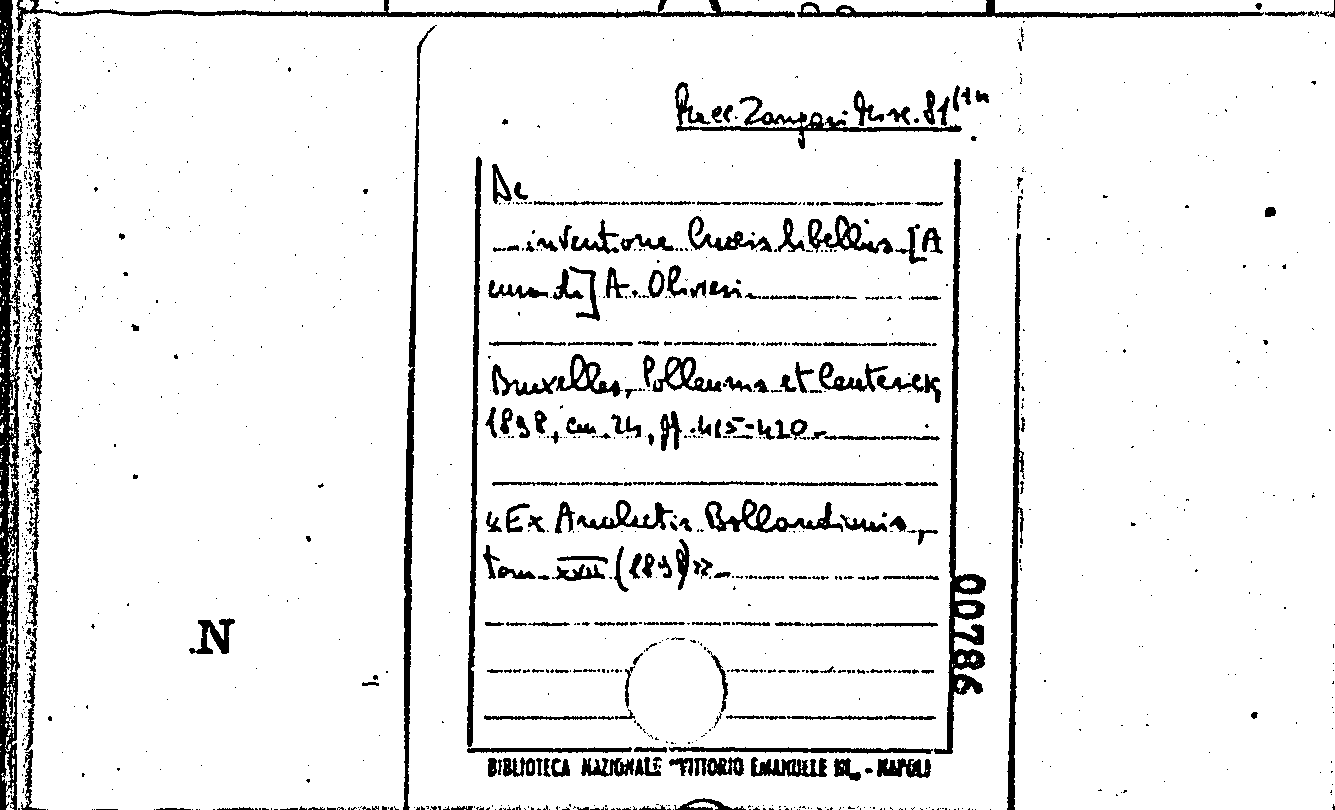 Racc. Zangari Misc. 81(14
De
inventione Crucis libellus. [A
cura di] A. Olivieri.
Bruxelles, Polleunis et Ceuterick,
1898, cm. 24, ff. 415-420.
«Ex Analectis Bollandianis,
tom. XVII (1898)».
00786
.N
BIBLIOTECA NAZIONALE "VITTORIO EMANUELE III„ - NAPOLI